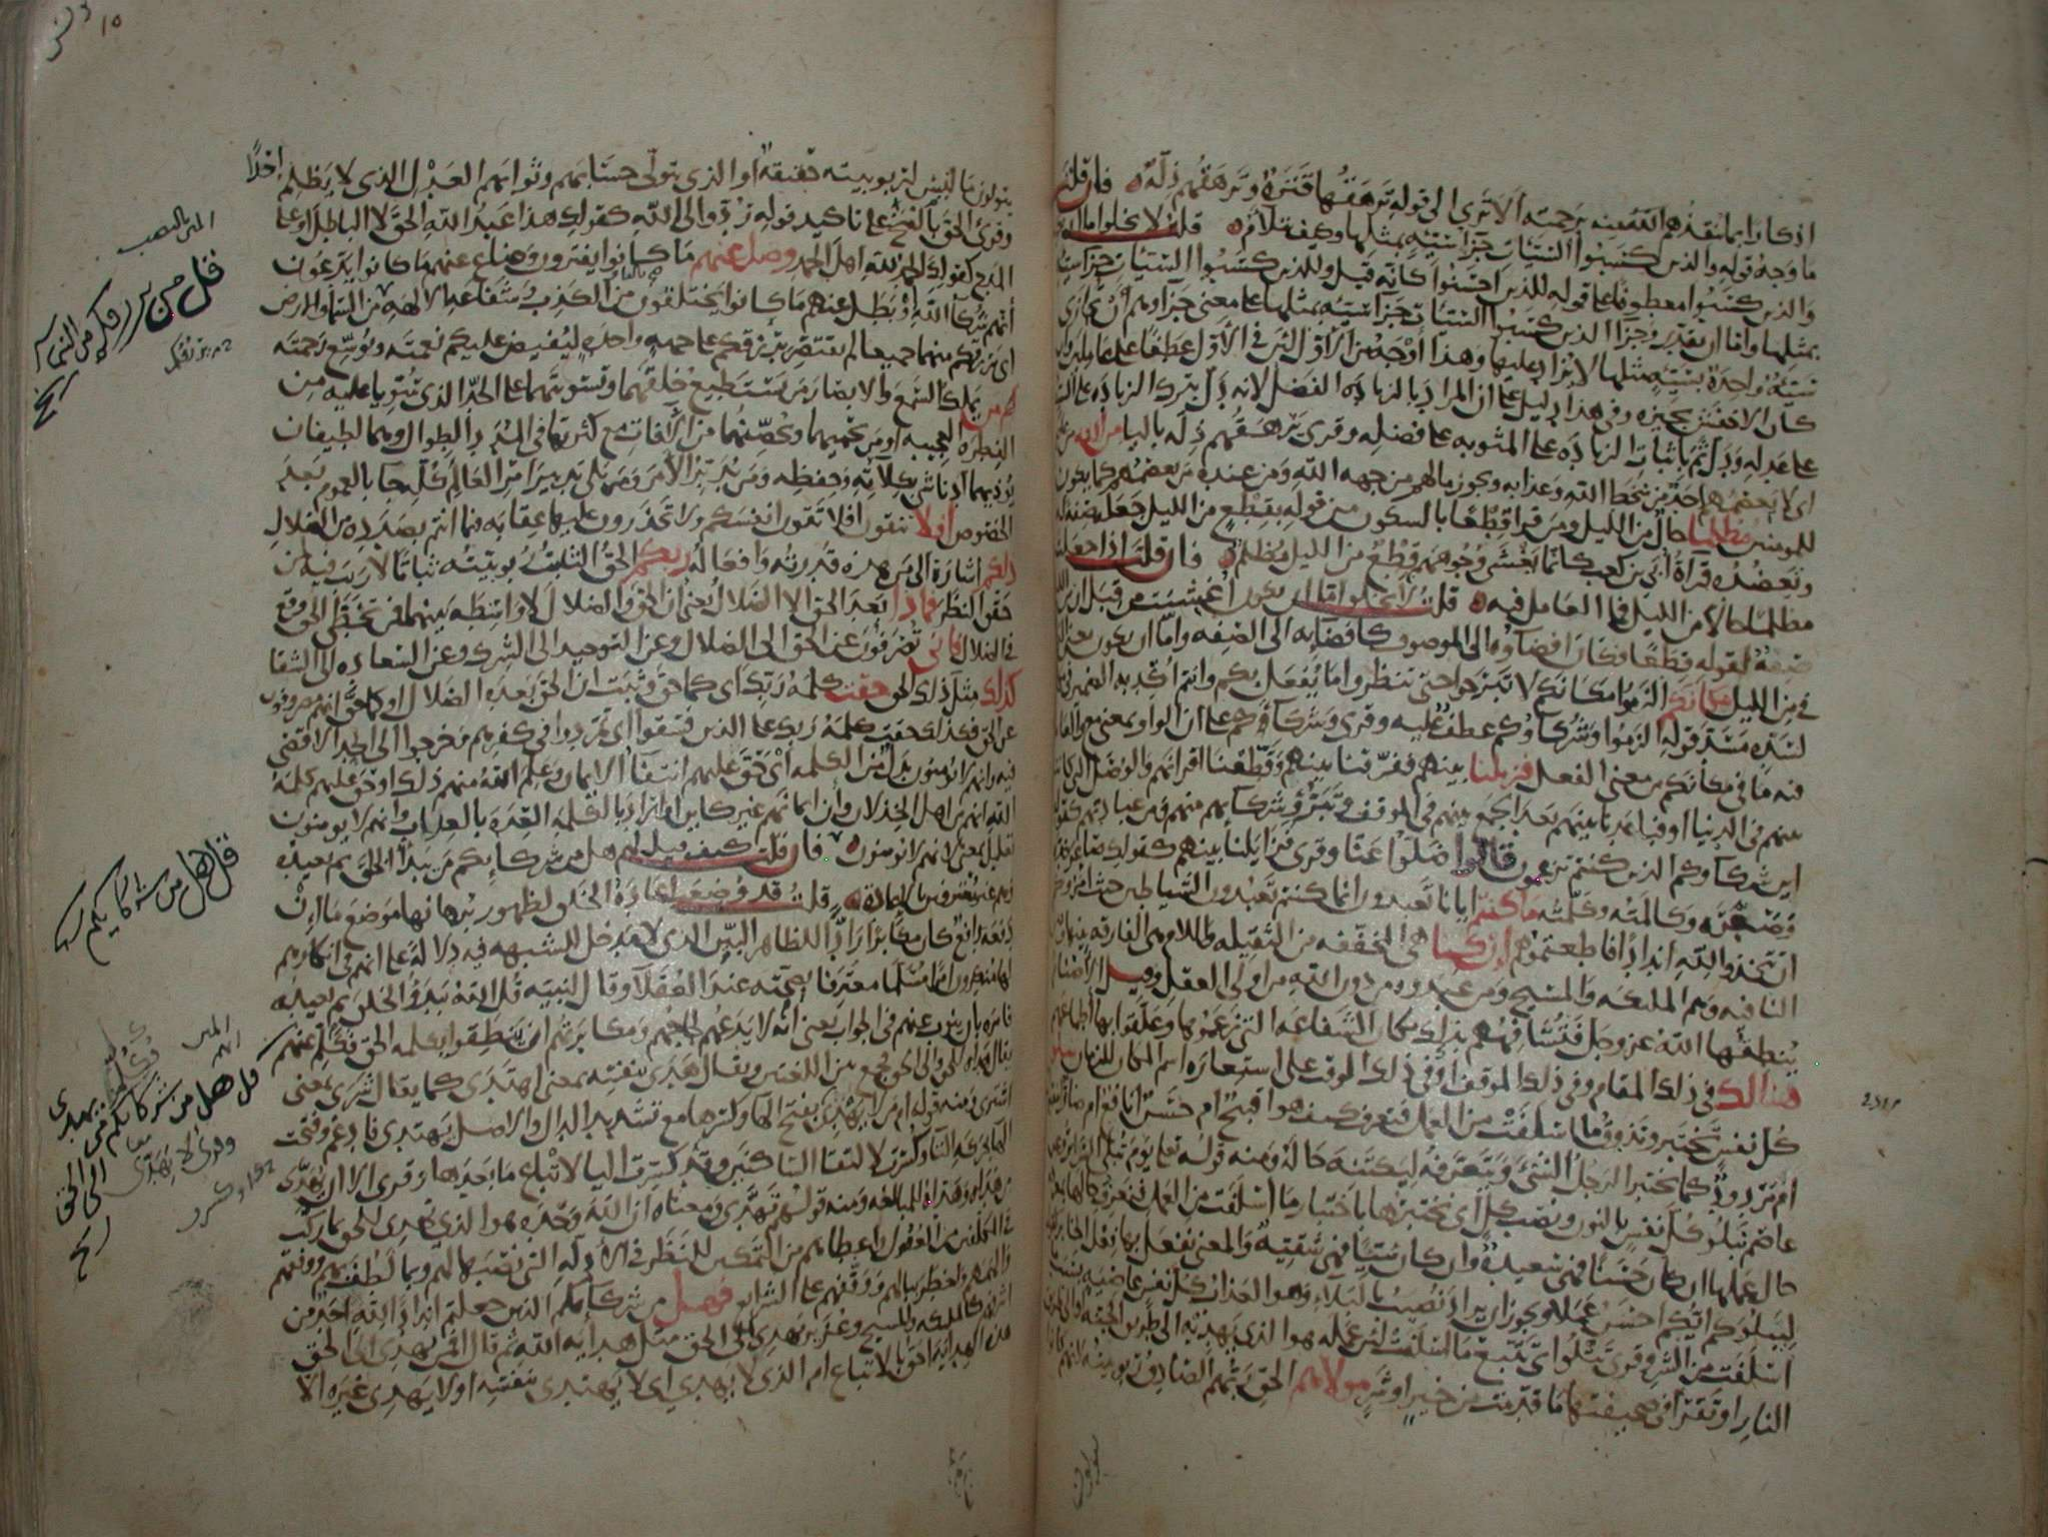 اذكارا بما ينقذهم الله منه برحمته الا ترى الى قوله ترهقها قترة وترهقهم ذلة فان قلت
ما وجه قوله والذين كسبوا السيئات جزا سيئة بمثلها وكيف تلاؤم قلت لا يخلوا اما ان يكون
والذين كسبوا معطوفا على قوله للذين احسنوا كانه قيل وللذين كسبوا السيئات جزا سيئة
بمثلها واما ان يقدر وجزا الذين كسبوا السيئات جزا سيئة بمثلها على معنى جزاوهم ان تجازى
سيئة واحدة بسيئة مثلها لا يزاد عليها وهذا اوجه من الاول لان في الاول عطفا على عاملين وان
كان الاخفش يجيزه وفي هذا دليل على ان المراد بالزيادة الفضل لانه دل بترك الزيادة على السيئة
على عدله ودل ثم باثبات الزيادة على المثوبة على فضله وقرى يرهقهم ذلة باليا من الله من عاصم
اي لا يعصمهم احد من سخط الله وعذابه ويجوز ما لهم من جهة الله ومن عنده من يعصمهم كما يكون
للمومنين مظلما حال من الليل ومن قرا قطعا بالسكون من قوله بقطع من الليل جعله صفة له
وتعضده قراة ابي بن كعب كانما يغشى وجوههم قطع من الليل مظلم فان قلت اذا جعلت
مظلما حالا من الليل فما العامل فيه قلت لا يخلوا اما ان يكون اغشيت من قبل ان من الليل
صفة لقوله قطعا فكان افضاوه الى الموصوف كافضايه الى الصفة واما ان يكون معنى الفعل
في من الليل مكانكم الزموا مكانكم لا تبرحوا حتى تنظروا ما يفعل بكم وانتم اكد به الضمير في مكانكم
لسده مسد قوله الزموا وشركاوكم عطف عليه وقرى وشركاوكم على ان الواو بمعنى مع والعامل
فيه ما في مكانكم من معنى الفعل فزيلنا بينهم ففرقنا بينهم وقطعنا اقرانهم والوصل التي كانت
بينهم في الدنيا او فباعدنا بينهم بعد الجمع بينهم في الموقف وتبرؤ شركايهم منهم ومن عبادتهم كقوله
اين شركاوكم الذين كنتم تزعمون قالوا ضلوا عنا وقرى فزايلنا بينهم كقولك صاعر خده
وصعره وكالمته وكلمته ما كنتم ايانا تعبدون انما كنتم تعبدون الشياطين حيث امروكم
ان تتخذوا لله اندادا فاطعتموهم ان كنا هي المخففة من الثقيلة واللام هي الفارقة بينها
النافية وهم الملئكة والمسيح ومن عبدوه من دون الله من اولي العقل وقيل الاصنام
ينطقها الله عز وجل فتشافههم بذلك مكان الشفاعة التي زعموها وعلقوا بها اطماعهم
هنالك في ذلك المقام وفي ذلك الموقف او في ذلك الوقت على استعارة اسم المكان للزمان تبلو
كل نفس تختبر وتذوق ما اسلفت من العمل فتعرف كيف هو اقبيح ام حسن انافع ام ضار امقبول
ام مردود كما يختبر الرجل الشي ويتعرفه ليكتنه حاله ومنه قوله تعالى يوم تبلى السراير وعن
عاصم نبلو كل نفس بالنون ونصب كل اي نختبرها باختبار ما اسلفت من العمل فنعرف حالها بمعرفة
حال عملها ان كان حسنا فهي سعيدة وان كان سيئا فهي شقية والمعنى نفعل بها فعل الخابر
ليبلوكم ايكم احسن عملا ويجوز ان يراد نصيب بالبلاء وهو العذاب كل نفس عاصية بسبب ما
اسلفت من الشر وقرى تتلوا اي تتبع ما اسلفت لان عمله هو الذي يهديه الى طريق الجنة او الى طريق
النار او تقرا في صحيفتها ما قدمت من خير او شر مولاهم الحق ربهم الصادق ربوبيته لانهم كانوا
يتولون
يتولون ما ليس لربوبيته حقيقة او الذي يتولى حسابهم وثوابهم العدل الذي لا يظلم احدا
وقرى الحق بالفتح على تاكيد قوله ردوا الى الله كقولك هذا عبد الله الحق لا الباطل او على
المدح كقولك الحمد لله اهل الحمد وضل عنهم ما كانوا يفترون وضاع عنهم ما كانوا يدعون
انهم شركا لله او بطل عنهم ما كانوا يختلقون من الكذب وشفاعة الالهة من السما والارض
اي يرزقكم منهما جميعا لم يقتصر برزقكم على جهة واحدة ليفيض عليكم نعمته ويوسع رحمته
ام من يملك السمع والابصار من يستطيع خلقهما وتسويتهما على الحد الذي سويا عليه من
الفطرة العجيبة او من يحميهما ويحصنهما من الافات مع كثرتها في المدد الطوال وهما لطيفان
يوذيهما ادنى شي بكلاته وحفظه ومن يدبر الامر ومن يلي تدبير امر العالم كله جا بالعموم بعد
الخصوص افلا تتقون افلا تقون انفسكم ولا تحذرون عليها عقابه فيما انتم بصدده من الضلال
ذلكم اشارة الى من هذه قدرته وافعاله ربكم الحق الثابت ربوبيته ثباتا لا ريب فيه لمن
حقق النظر فماذا بعد الحق الا الضلال يعني ان الحق والضلال لا واسطة بينهما فمن تخطى الحق وقع
في الضلال فانى تصرفون عن الحق الى الضلال وعن التوحيد الى الشرك وعن السعادة الى الشقا
كذلك مثل ذلك الحق حقت كلمة ربك اي كما حق وثبت ان الحق بعده الضلال او كما حق انهم مصروفون
عن الحق فكذلك حقت كلمة ربك على الذين فسقوا اي تمردوا في كفرهم وخرجوا الى الحد الاقصى
فيه وانهم لا يومنون بدل من الكلمة اي حق عليهم انتفا الايمان وعلم الله منهم ذلك او حق عليهم كلمة
الله انهم من اهل الخذلان وان ايمانهم غير كاين او اراد بالكلمة العدة بالعذاب وانهم لا يومنون
تعليل بمعنى لانهم لا يومنون فان قلت كيف قيل لهم هل من شركايكم من يبدا الخلق ثم يعيده
وهم غير معترفين بالاعادة قلت قد وضعت اعادة الخلق لظهور برهانها موضع ما ان
دفعه دافع كان مكابرا رادا للظاهر البين الذي لا مدخل للشبهة فيه دلالة على انهم في انكارهم
لها منكرون امرا مسلما معترفا بصحته عند العقلا وقال لنبيه قل الله يبدؤ الخلق ثم يعيده
فامره بان ينوب عنهم في الجواب يعني انه لا يدعهم لجاجهم ومكابرتهم ان ينطقوا بكلمة الحق فكلم عنهم
يقال هداه للحق والى الحق فجمع بين اللغتين ويقال هدى بنفسه بمعنى اهتدى كما يقال شرى بمعنى
اشترى ومنه قوله ام من لا يهدي بفتح الها وكسرها مع تشديد الدال والاصل يهتدي فادغم وفتحت
الها بحركة التا وكسرت لالتقا الساكنين وقد كسرت اليا لاتباع ما بعدها وقرى الا ان يهدى
من هداه وهداه للمبالغة ومنه قولهم تهدى ومعناه ان الله وحده هو الذي يهدي للحق بما ركب
في المكلفين من العقول واعطاهم من التمكين للنظر في الادلة التي نصبها لهم وبما لطف بهم ووفقهم
والهمهم واخطر ببالهم ووقفهم على الشرايع فهل من شركايكم الذين جعلتم اندادا لله احد من
اشرفهم كالملئكة والمسيح وعزير يهدي الى الحق مثل هداية الله ثم قال افمن يهدي الى الحق
هذه الهداية احق بالاتباع ام الذي لا يهدي اي لا يهتدي بنفسه او لا يهدي غيره الا
قل من يرزقكم من السماء
قل هل من شركائكم
قل هل من شركائكم من يهدي
الى الحق